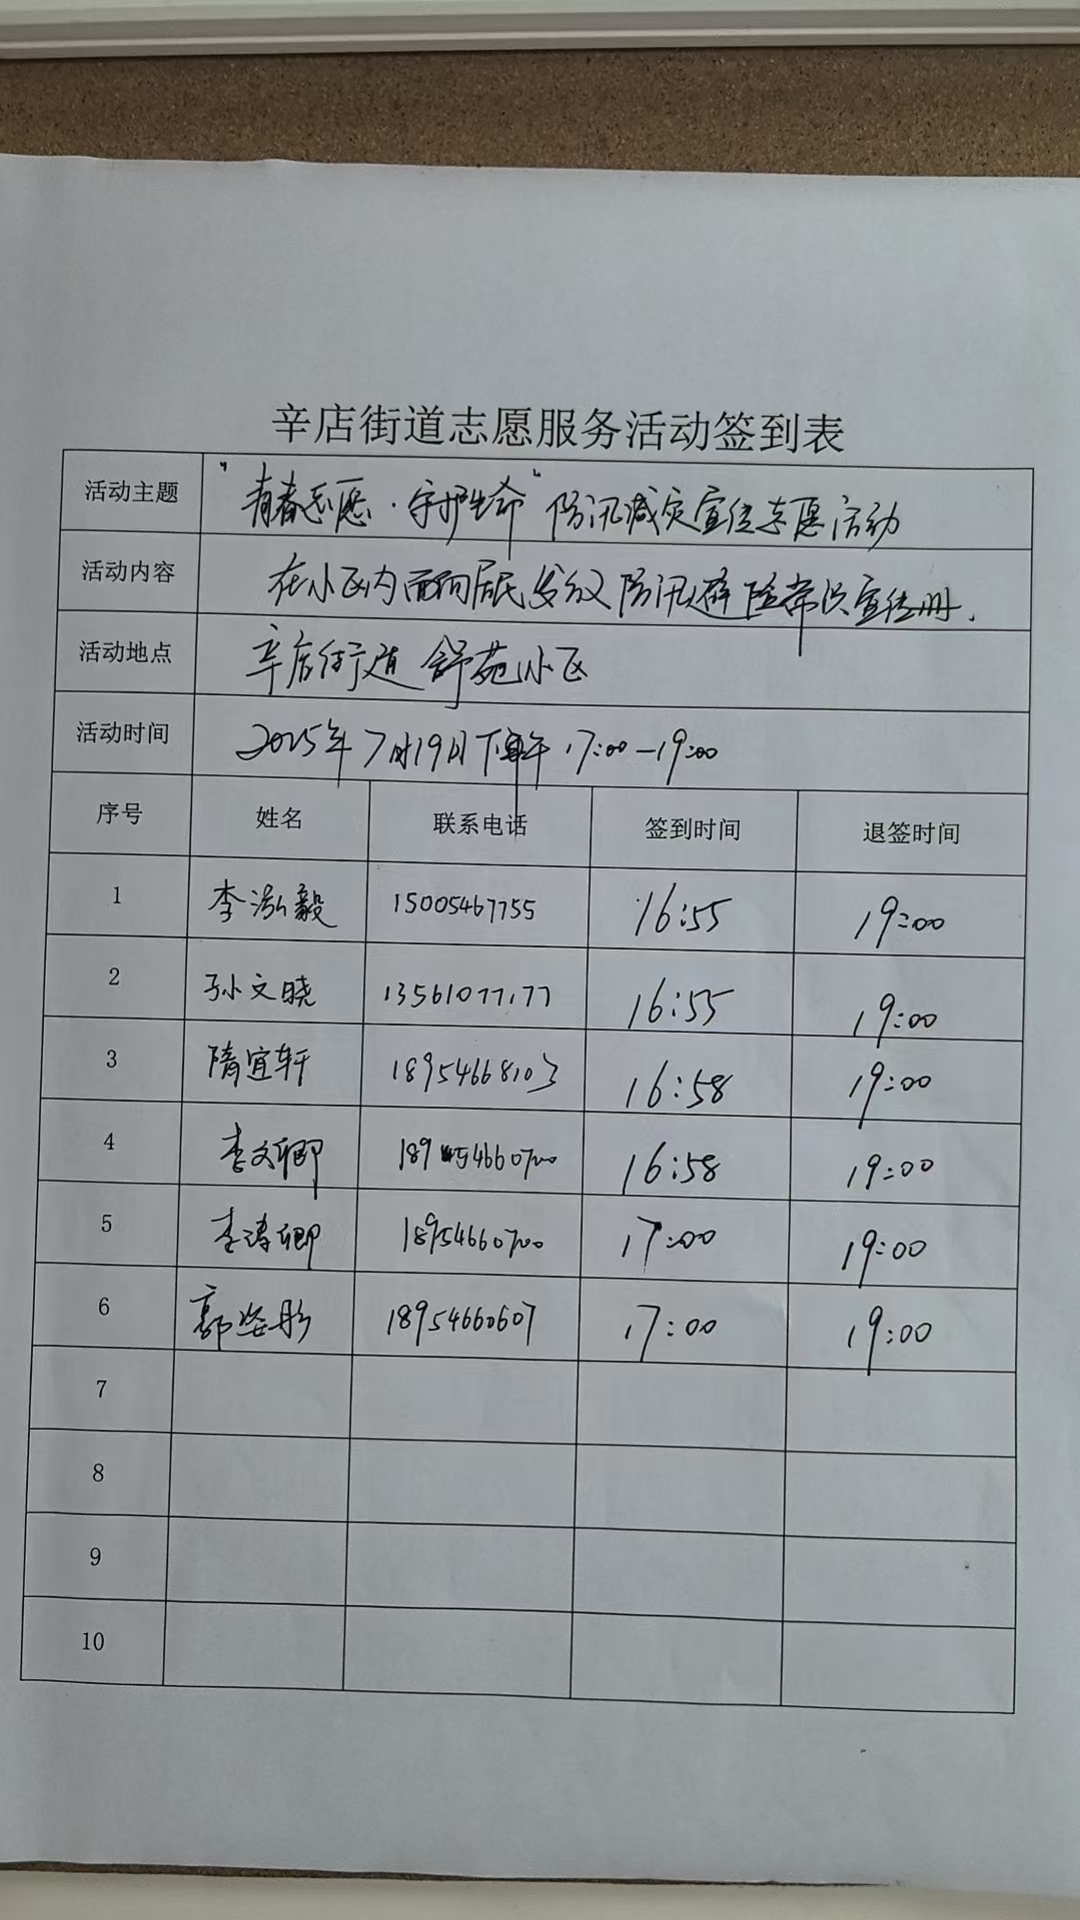 辛店街道志愿服务活动签到表
活动主题 "青春志愿·守护生命"防汛减灾宣传志愿活动
活动内容 在小区内面向居民发放防汛避险常识宣传册.
活动地点 辛店街道 舒苑小区
活动时间 2025年7月19日下午 17:00—19:00
序号 姓名 联系电话 签到时间 退签时间
1 李泓毅 15005467755 16:55 19:00
2 孙文晓 13561077177 16:55 19:00
3 隋宜轩 18954668103 16:58 19:00
4 李文卿 18954660700 16:58 19:00
5 李涛卿 18954660700 17:00 19:00
6 郭姿彤 18954660607 17:00 19:00
7
8
9
10